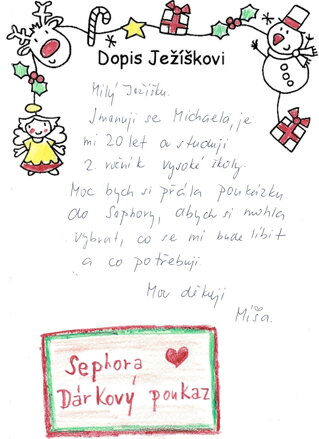 Dopis Ježíškovi
Milý Ježíšku.
Jmenuji se Michaela, je
mi 20 let a studuji
2. ročník vysoké školy.
Moc bych si přála poukázku
do Sephory, abych si mohla
vybrat, co se mi bude líbit
a co potřebuji.
Moc děkuji
Míša.
Sephora
Dárkový poukaz